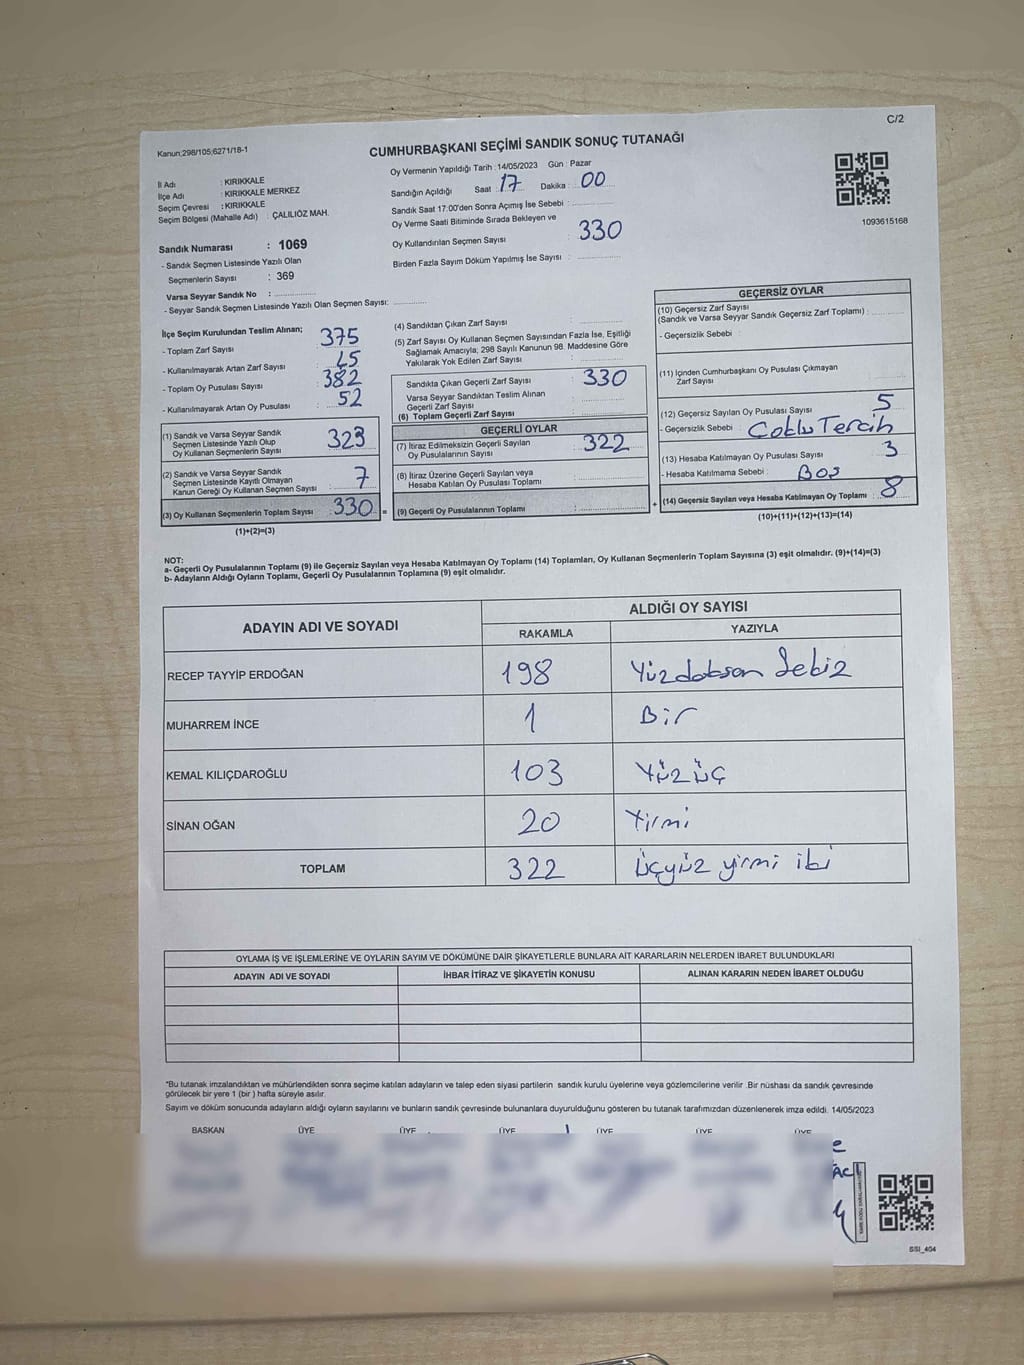 C/2
Kanun;298/105;6271/18-1
CUMHURBAŞKANI SEÇİMİ SANDIK SONUÇ TUTANAĞI
İl Adı : KIRIKKALE
İlçe Adı : KIRIKKALE MERKEZ
Seçim Çevresi : KIRIKKALE
Seçim Bölgesi (Mahalle Adı) : ÇALILIÖZ MAH.
Sandık Numarası : 1069
- Sandık Seçmen Listesinde Yazılı Olan
Seçmenlerin Sayısı : 369
Varsa Seyyar Sandık No :
- Seyyar Sandık Seçmen Listesinde Yazılı Olan Seçmen Sayısı:
Oy Vermenin Yapıldığı Tarih : 14/05/2023 Gün : Pazar
Sandığın Açıldığı Saat : 17 Dakika : 00
Sandık Saat 17:00'den Sonra Açımış İse Sebebi :
Oy Verme Saati Bitiminde Sırada Bekleyen ve
Oy Kullandırılan Seçmen Sayısı : 330
Birden Fazla Sayım Döküm Yapılmış İse Sayısı :
1093615168
İlçe Seçim Kurulundan Teslim Alınan;
- Toplam Zarf Sayısı : 375
- Kullanılmayarak Artan Zarf Sayısı : 45
- Toplam Oy Pusulası Sayısı : 382
- Kullanılmayarak Artan Oy Pusulası : 52
(1) Sandık ve Varsa Seyyar Sandık
Seçmen Listesinde Yazılı Olup
Oy Kullanan Seçmenlerin Sayısı 323
(2) Sandık ve Varsa Seyyar Sandık
Seçmen Listesinde Kayıtlı Olmayan
Kanun Gereği Oy Kullanan Seçmen Sayısı 7
(3) Oy Kullanan Seçmenlerin Toplam Sayısı : 330 =
(1)+(2)=(3)
(4) Sandıktan Çıkan Zarf Sayısı :
(5) Zarf Sayısı Oy Kullanan Seçmen Sayısından Fazla İse, Eşitliği
Sağlamak Amacıyla; 298 Sayılı Kanunun 98. Maddesine Göre
Yakılarak Yok Edilen Zarf Sayısı :
Sandıkta Çıkan Geçerli Zarf Sayısı : 330
Varsa Seyyar Sandıktan Teslim Alınan
Geçerli Zarf Sayısı :
(6) Toplam Geçerli Zarf Sayısı :
GEÇERLİ OYLAR
(7) İtiraz Edilmeksizin Geçerli Sayılan
Oy Pusulalarının Sayısı : 322
(8) İtiraz Üzerine Geçerli Sayılan veya
Hesaba Katılan Oy Pusulası Toplamı :
(9) Geçerli Oy Pusulalarının Toplamı : +
GEÇERSİZ OYLAR
(10) Geçersiz Zarf Sayısı
(Sandık ve Varsa Seyyar Sandık Geçersiz Zarf Toplamı) :
- Geçersizlik Sebebi :
(11) İçinden Cumhurbaşkanı Oy Pusulası Çıkmayan
Zarf Sayısı :
(12) Geçersiz Sayılan Oy Pusulası Sayısı : 5
- Geçersizlik Sebebi : Çoklu Tercih
(13) Hesaba Katılmayan Oy Pusulası Sayısı : 3
- Hesaba Katılmama Sebebi : Boş
(14) Geçersiz Sayılan veya Hesaba Katılmayan Oy Toplamı : 8
(10)+(11)+(12)+(13)=(14)
NOT:
a- Geçerli Oy Pusulalarının Toplamı (9) ile Geçersiz Sayılan veya Hesaba Katılmayan Oy Toplamı (14) Toplamları, Oy Kullanan Seçmenlerin Toplam Sayısına (3) eşit olmalıdır. (9)+(14)=(3)
b- Adayların Aldığı Oyların Toplamı, Geçerli Oy Pusulalarının Toplamına (9) eşit olmalıdır.
ADAYIN ADI VE SOYADI ALDIĞI OY SAYISI
RAKAMLA YAZIYLA
RECEP TAYYİP ERDOĞAN 198 Yüzdoksan Sekiz
MUHARREM İNCE 1 Bir
KEMAL KILIÇDAROĞLU 103 Yüzüç
SİNAN OĞAN 20 Yirmi
TOPLAM 322 Üçyüz yirmi iki
OYLAMA İŞ VE İŞLEMLERİNE VE OYLARIN SAYIM VE DÖKÜMÜNE DAİR ŞİKAYETLERLE BUNLARA AİT KARARLARIN NELERDEN İBARET BULUNDUKLARI
ADAYIN ADI VE SOYADI İHBAR İTİRAZ VE ŞİKAYETİN KONUSU ALINAN KARARIN NEDEN İBARET OLDUĞU
*Bu tutanak imzalandıktan ve mühürlendikten sonra seçime katılan adayların ve talep eden siyasi partilerin sandık kurulu üyelerine veya gözlemcilerine verilir .Bir nüshası da sandık çevresinde
görülecek bir yere 1 (bir ) hafta süreyle asılır.
Sayım ve döküm sonucunda adayların aldığı oyların sayılarını ve bunların sandık çevresinde bulunanlara duyurulduğunu gösteren bu tutanak tarafımızdan düzenlenerek imza edildi. 14/05/2023
BAŞKAN ÜYE ÜYE ÜYE ÜYE ÜYE ÜYE
SSİ_404